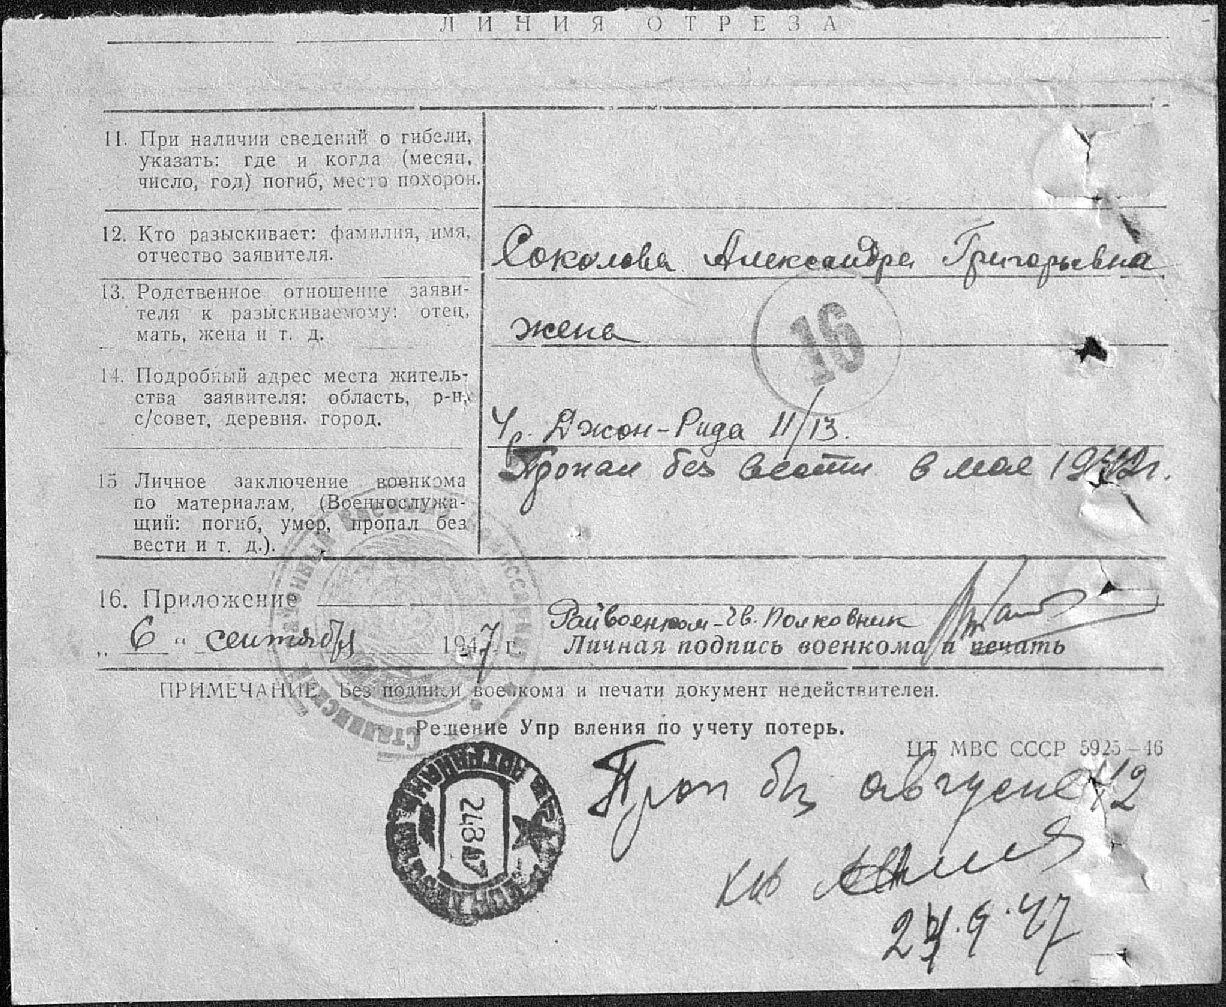 ЛИНИЯ ОТРЕЗА
11. При наличии сведений о гибели,
указать: где и когда (месяц,
число, год) погиб, место похорон.
12. Кто разыскивает: фамилия, имя,
отчество заявителя.
Соколова Александра Григорьевна
13. Родственное отношение заяви-
теля к разыскиваемому: отец,
мать, жена и т. д.
жена
16
14. Подробный адрес места житель-
ства заявителя: область, р-н,
с/совет, деревня. город.
Джон-Рида 11/13.
15 Личное заключение военкома
по материалам, (Военнослужа-
щий: погиб, умер, пропал без
вести и т. д.).
Пропал без вести в мае 1942г.
16. Приложение
Райвоенком-Гв. Полковник
„ 6 " сентября 1947 г.
Личная подпись военкома и печать
ПРИМЕЧАНИЕ. Без подписи военкома и печати документ недействителен.
Решение Упр вления по учету потерь.
ЦТ МВС СССР 5925—46
Проп бв августе 42
24 8 47
9.47